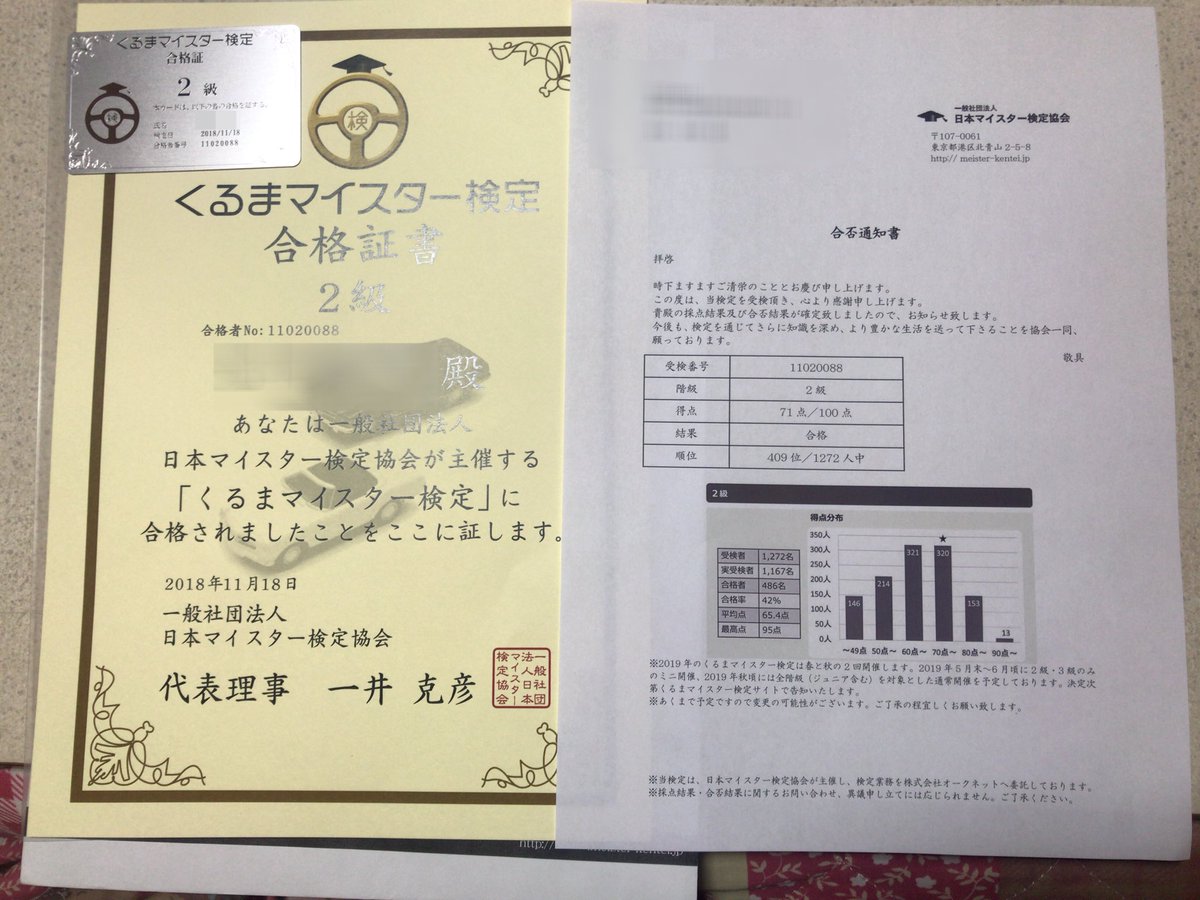 くるまマイスター検定
合格証
2 級
本カードは、以下の者の合格を証する。
氏名
検定日 2018/11/18
合格者番号 11020088
検
くるまマイスター検定
合格証書
2級
合格者No:11020088
殿
あなたは一般社団法人
日本マイスター検定協会が主催する
「くるまマイスター検定」に
合格されましたことをここに証します。
2018年11月18日
一般社団法人
日本マイスター検定協会
代表理事 一井 克彦
一般社団
法人日本
マイスター
検定協会
一般社団法人
日本マイスター検定協会
〒107-0061
東京都港区北青山2-5-8
http:// meister-kentei.jp
合否通知書
拝啓
時下ますますご清学のこととお慶び申し上げます。
この度は、当検定を受検頂き、心より感謝申し上げます。
貴殿の採点結果及び合否結果が確定致しましたので、お知らせ致します。
今後も、検定を通じてさらに知識を深め、より豊かな生活を送って下さることを協会一同、
願っております。
敬具
受検番号 11020088
階級 2級
得点 71点/100点
結果 合格
順位 409位/1272人中
2級
得点分布
受検者 1,272名
実受検者 1,167名
合格者 486名
合格率 42%
平均点 65.4点
最高点 95点
350人
300人
250人
200人
150人
100人
50人
0人
146 214 321 ★ 320 153 13
~49点 50点~ 60点~ 70点~ 80点~ 90点~
※2019年のくるまマイスター検定は春と秋の2回開催します。2019年5月末~6月頃に2級・3級のみ
のミニ開催、2019年秋頃には全階級（ジュニア含む）を対象とした通常開催を予定しております。決定次
第くるまマイスター検定サイトで告知いたします。
※あくまで予定ですので変更の可能性がございます。ご了承の程宜しくお願い致します。
※当検定は、日本マイスター検定協会が主催し、検定業務を株式会社オークネットへ委託しております。
※採点結果・合否結果に関するお問い合わせ、異議申し立てには応じられません。ご了承ください。